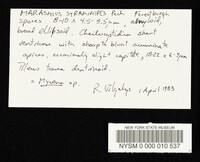 MARASMIUS STRAMINIPES Peck Forestburgh
spores 8-10 x 4.5-5.5 µm, amyloid,
broad ellipsoid. Cheilocystidia short
ventricose with abrupt blunt acuminate
apices, occasionally slight capitate, 18-22 x 6-9 µm
Pileus trama dextrinoid.
= Mycena sp.
R. Vilgalys 1 April 1983
NEW YORK STATE MUSEUM
NYSM 0 000 010 537